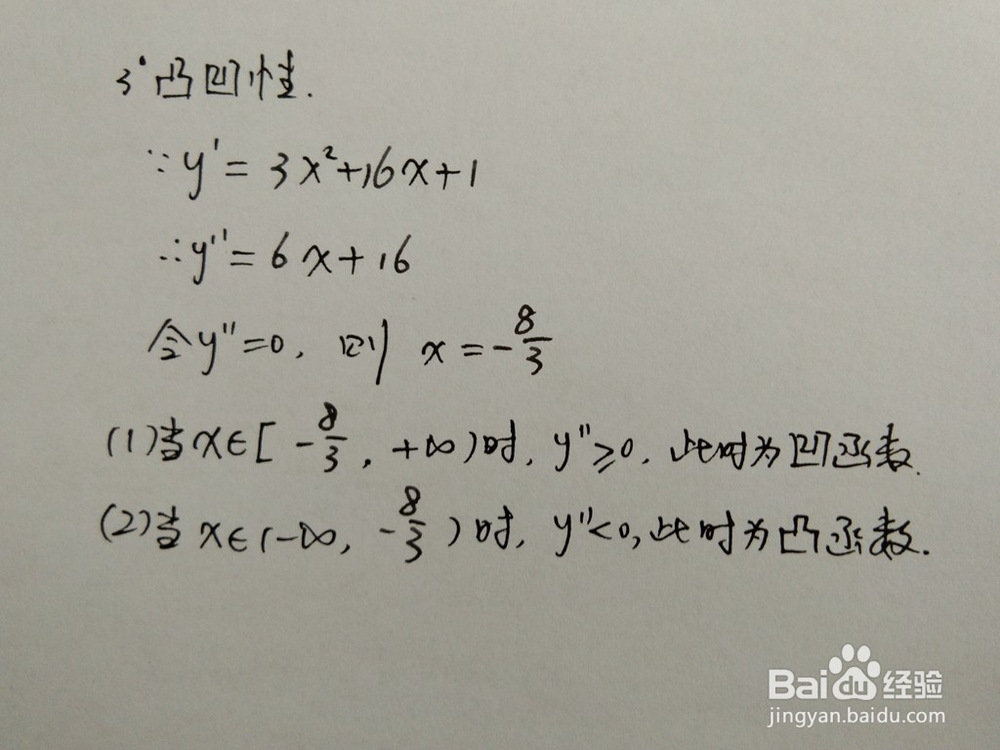 3° 凸凹性.
∵y' = 3x²+16x+1
∴y'' = 6x+16
令y''=0, 则 x=-8/3
(1)当x∈[-8/3, +∞)时, y''≥0, 此时为凹函数.
(2)当x∈(-∞, -8/3)时, y''<0,此时为凸函数.
Baidu经验
jingyan.baidu.com